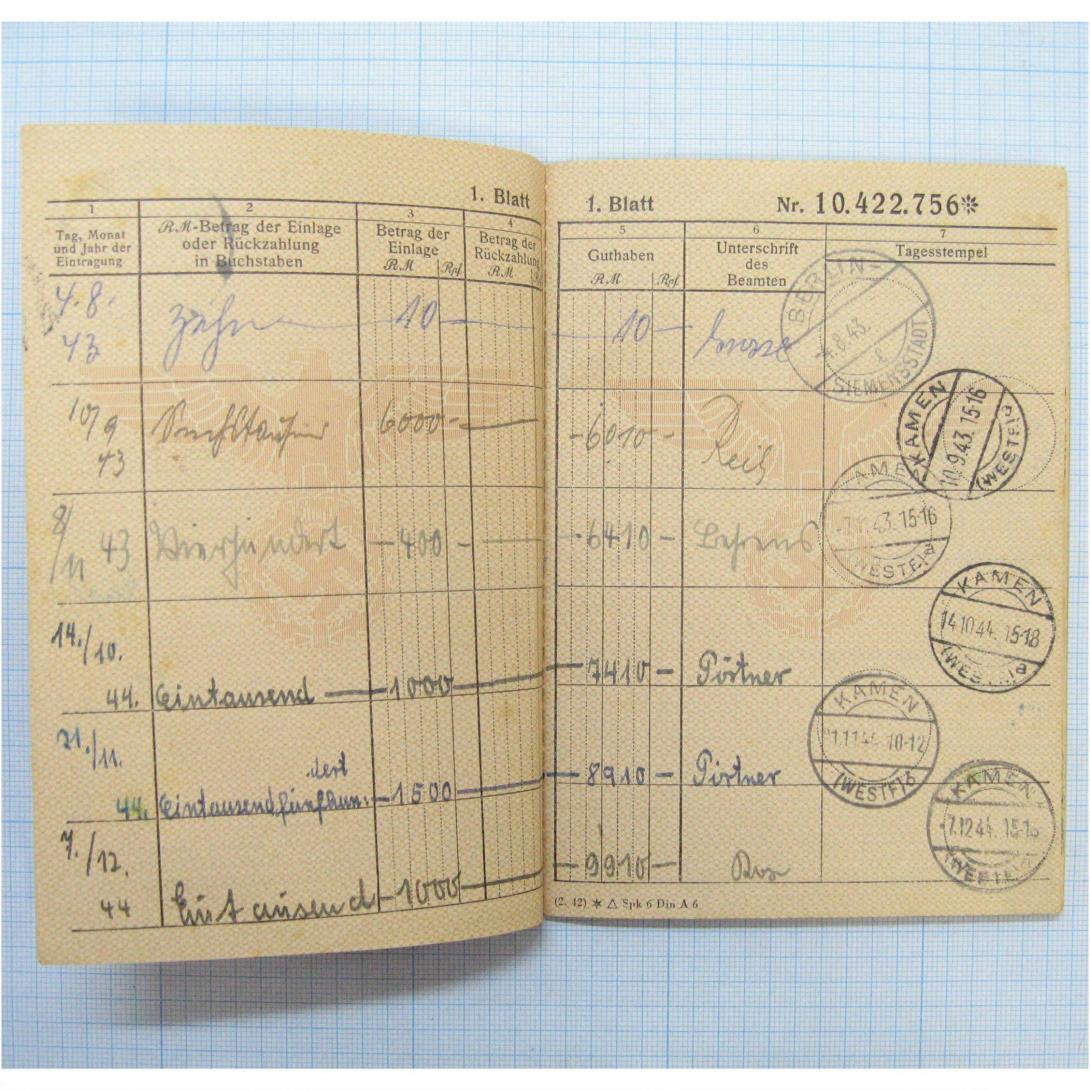 1. Blatt
1 2 3 4
Tag, Monat und Jahr der Eintragung
RM-Betrag der Einlage oder Rückzahlung in Buchstaben
Betrag der Einlage
RM Rpf
Betrag der Rückzahlung
RM
4.8. 43 zehn 10
10/9 43 Sechstausend 6000-
8/11 43 Vierhundert -400-
14./10. 44. Eintausend 1000
21./11. 44. Eintausendfünfhun-dert 1500
7./12. 44 Eintausend 1000
1. Blatt Nr. 10.422.756*
5 6 7
Guthaben
RM Rpf
Unterschrift des Beamten
Tagesstempel
10
BERLIN-SIEMENSSTADT
4.8.43.
-6010-
KAMEN
10.9.43.15-16
(WESTF)
-6410- Behrens
KAMEN
43.15-16
(WESTF)
-7410- Pörtner
KAMEN
14.10.44. 15-18
(WESTF)
-8910- Pörtner
KAMEN
21.11.44. 10-12
(WESTF)
-9910-
KAMEN
-7.12.44. 15-16
(WESTF)
(2. 42) * △ Spk 6 Din A 6